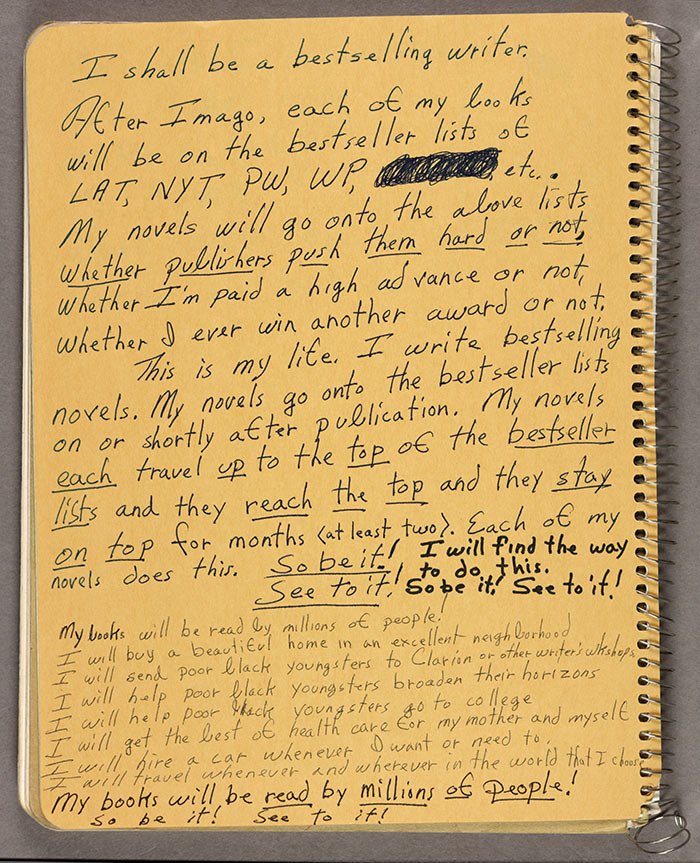 I shall be a bestselling writer.
After Imago, each of my books
will be on the bestseller lists of
LAT, NYT, PW, WP, etc..
My novels will go onto the above lists
whether publishers push them hard or not,
whether I'm paid a high advance or not,
whether I ever win another award or not.
This is my life. I write bestselling
novels. My novels go onto the bestseller lists
on or shortly after publication. My novels
each travel up to the top of the bestseller
lists and they reach the top and they stay
on top for months (at least two). Each of my
novels does this. So be it! I will find the way
See to it! to do this.
So be it! See to it!
My books will be read by millions of people!
I will buy a beautiful home in an excellent neighborhood
I will send poor black youngsters to Clarion or other writer's wkshops
I will help poor black youngsters broaden their horizons
I will help poor black youngsters go to college
I will get the best of health care for my mother and myself
I will hire a car whenever I want or need to.
I will travel whenever and wherever in the world that I choose
My books will be read by millions of people!
So be it! See to it!